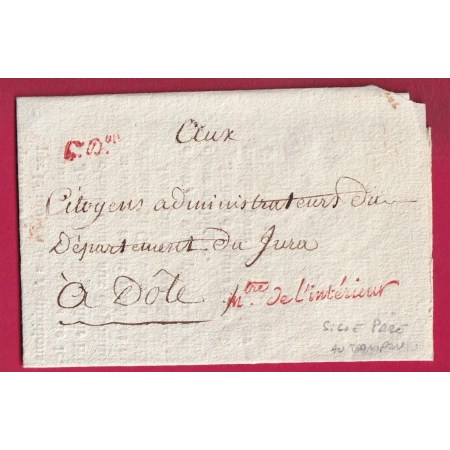 5.e D.on
Aux
Citoyens administrateurs du
Département du Jura
à Dôle
M.tre de l'intérieur
SIGNÉ
AU TAMPON